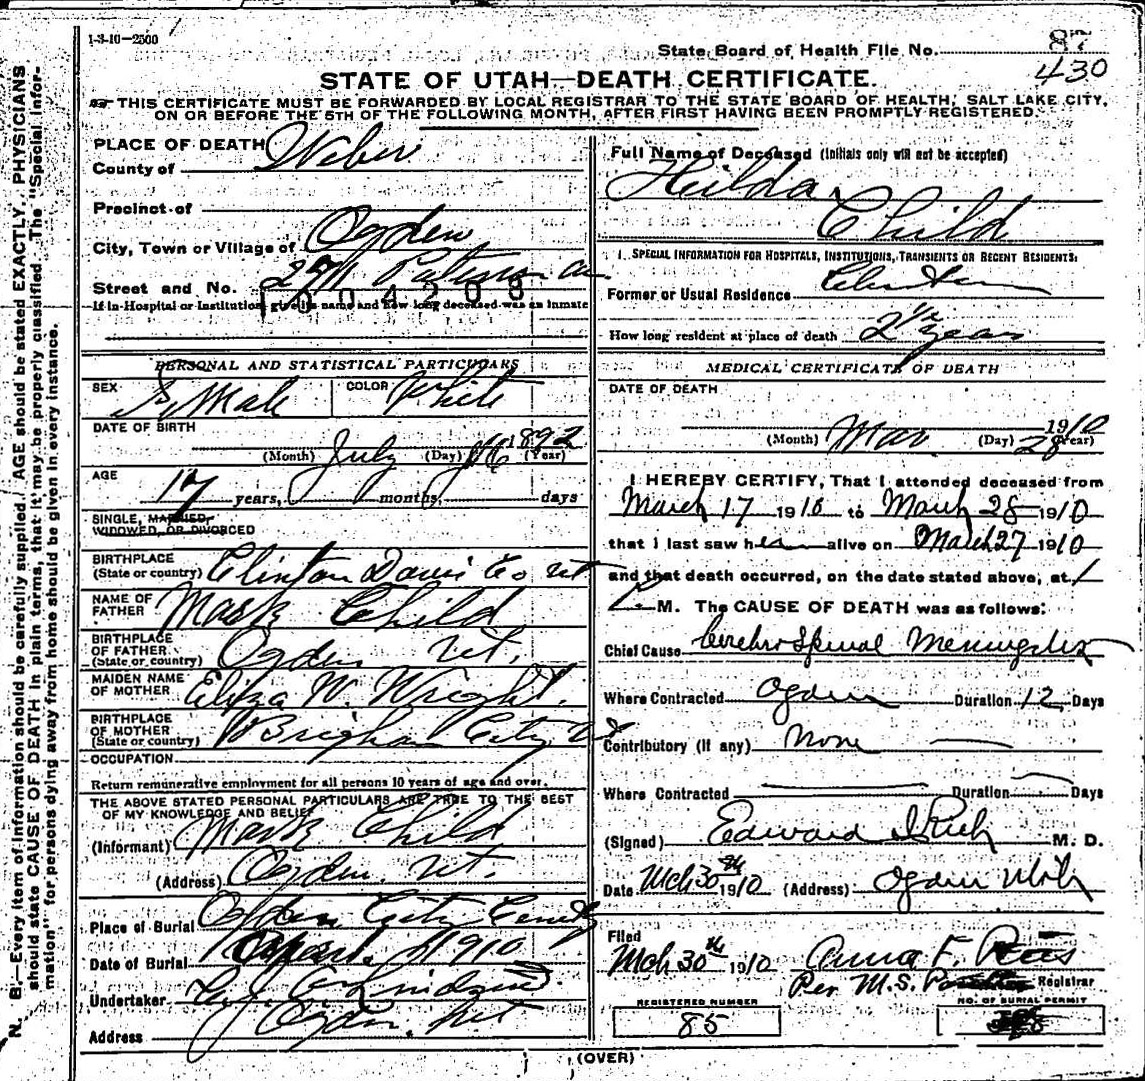 1-3-10-2500
State Board of Health File No. 87
430
STATE OF UTAH—DEATH CERTIFICATE.
THIS CERTIFICATE MUST BE FORWARDED BY LOCAL REGISTRAR TO THE STATE BOARD OF HEALTH, SALT LAKE CITY,
ON OR BEFORE THE 5TH OF THE FOLLOWING MONTH, AFTER FIRST HAVING BEEN PROMPTLY REGISTERED.
N. B.—Every item of information should be carefully supplied. AGE should be stated EXACTLY. PHYSICIANS
should state CAUSE OF DEATH in plain terms, that it may be properly classified. The "Special Infor-
mation" for persons dying away from home should be given in every instance.
PLACE OF DEATH
County of Weber
Precinct of
City, Town or Village of Ogden
Street and No. 271
If in Hospital or Institution, give its name and how long deceased was an inmate
1004208
PERSONAL AND STATISTICAL PARTICULARS
SEX Female COLOR White
DATE OF BIRTH
(Month) July (Day) 16 1892 (Year)
AGE
17 years, months, days
SINGLE, MARRIED,
WIDOWED, OR DIVORCED
BIRTHPLACE
(State or country) Clinton Davis Co ut
NAME OF
FATHER Mark Child
BIRTHPLACE
OF FATHER
(State or country) Ogden Ut.
MAIDEN NAME
OF MOTHER Eliza W. Wright.
BIRTHPLACE
OF MOTHER
(State or country) Brigham City Ut
OCCUPATION
Return remunerative employment for all persons 10 years of age and over.
THE ABOVE STATED PERSONAL PARTICULARS ARE TRUE TO THE BEST
OF MY KNOWLEDGE AND BELIEF
(Informant) Mark Child
(Address) Ogden. Ut.
Place of Burial Ogden City Cemty
Date of Burial 1910
Undertaker Lindquist
Address Ogden, Ut
Full Name of Deceased (Initials only will not be accepted)
Hilda
Child
1. SPECIAL INFORMATION FOR HOSPITALS, INSTITUTIONS, TRANSIENTS OR RECENT RESIDENTS:
Former or Usual Residence Clinton
How long resident at place of death 2 1/2 years
MEDICAL CERTIFICATE OF DEATH
DATE OF DEATH
(Month) Mar (Day) 28 1910 (Year)
I HEREBY CERTIFY, That I attended deceased from
March 17 1910 to March 28 1910
that I last saw her alive on March 27 1910
and that death occurred, on the date stated above, at 1
M. The CAUSE OF DEATH was as follows:
Chief Cause Cerebro Spinal Meningitis
Where Contracted Ogden Duration 12 Days
Contributory (if any) None
Where Contracted Duration Days
(Signed) Edward I Rich M. D.
Date Mch 30th 1910 (Address) Ogden Utah
Filed
Mch 30th 1910 Anna F. Rees
Per M.S. Registrar
REGISTERED NUMBER
85
NO. OF BURIAL PERMIT
(OVER)